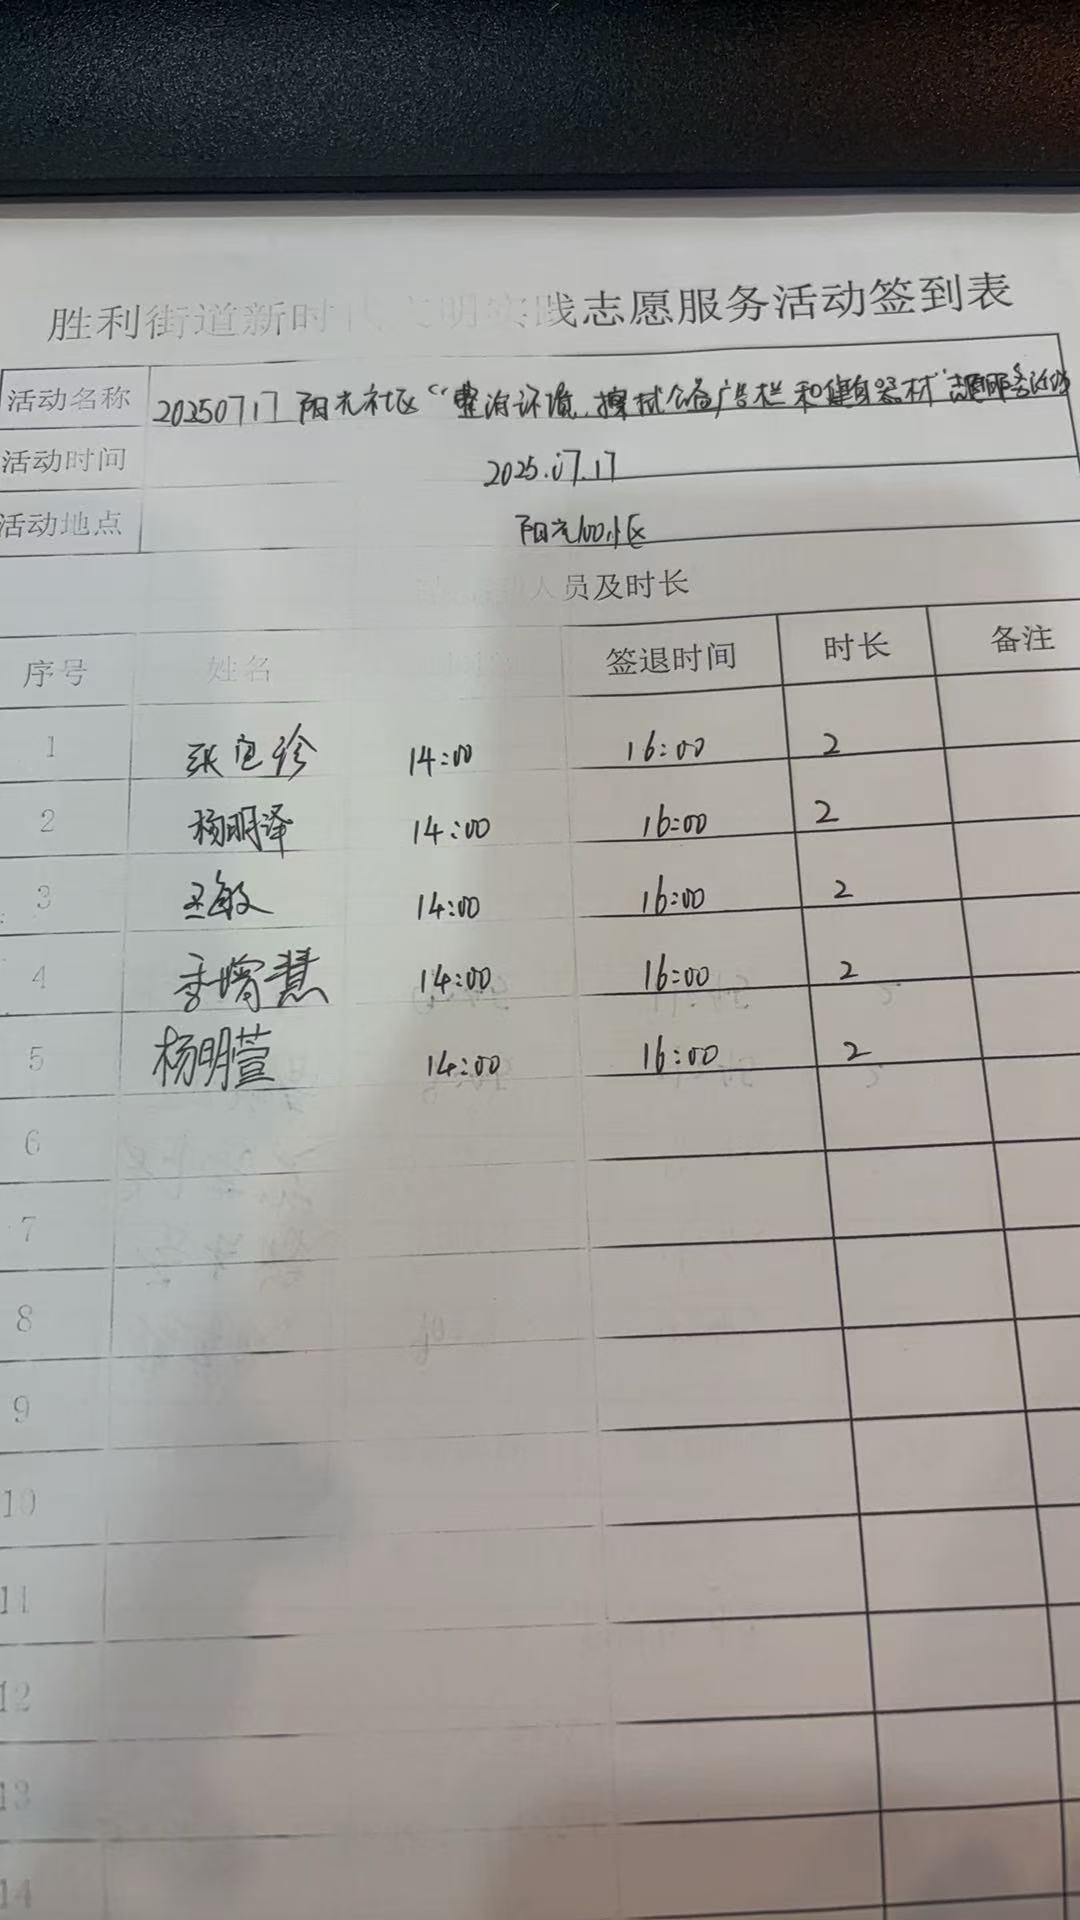 胜利街道新时代文明实践志愿服务活动签到表
活动名称 20250717 阳光社区“整治环境、擦拭公益广告栏和健身器材”志愿服务活动
活动时间 2025.07.17
活动地点 阳光100小区
人员及时长
序号 姓名 签退时间 时长 备注
1 张宜诊 14:00 16:00 2
2 杨明泽 14:00 16:00 2
3 王敏 14:00 16:00 2
4 李增慧 14:00 16:00 2
5 杨明萱 14:00 16:00 2
6
7
8
9
10
11
12
13
14